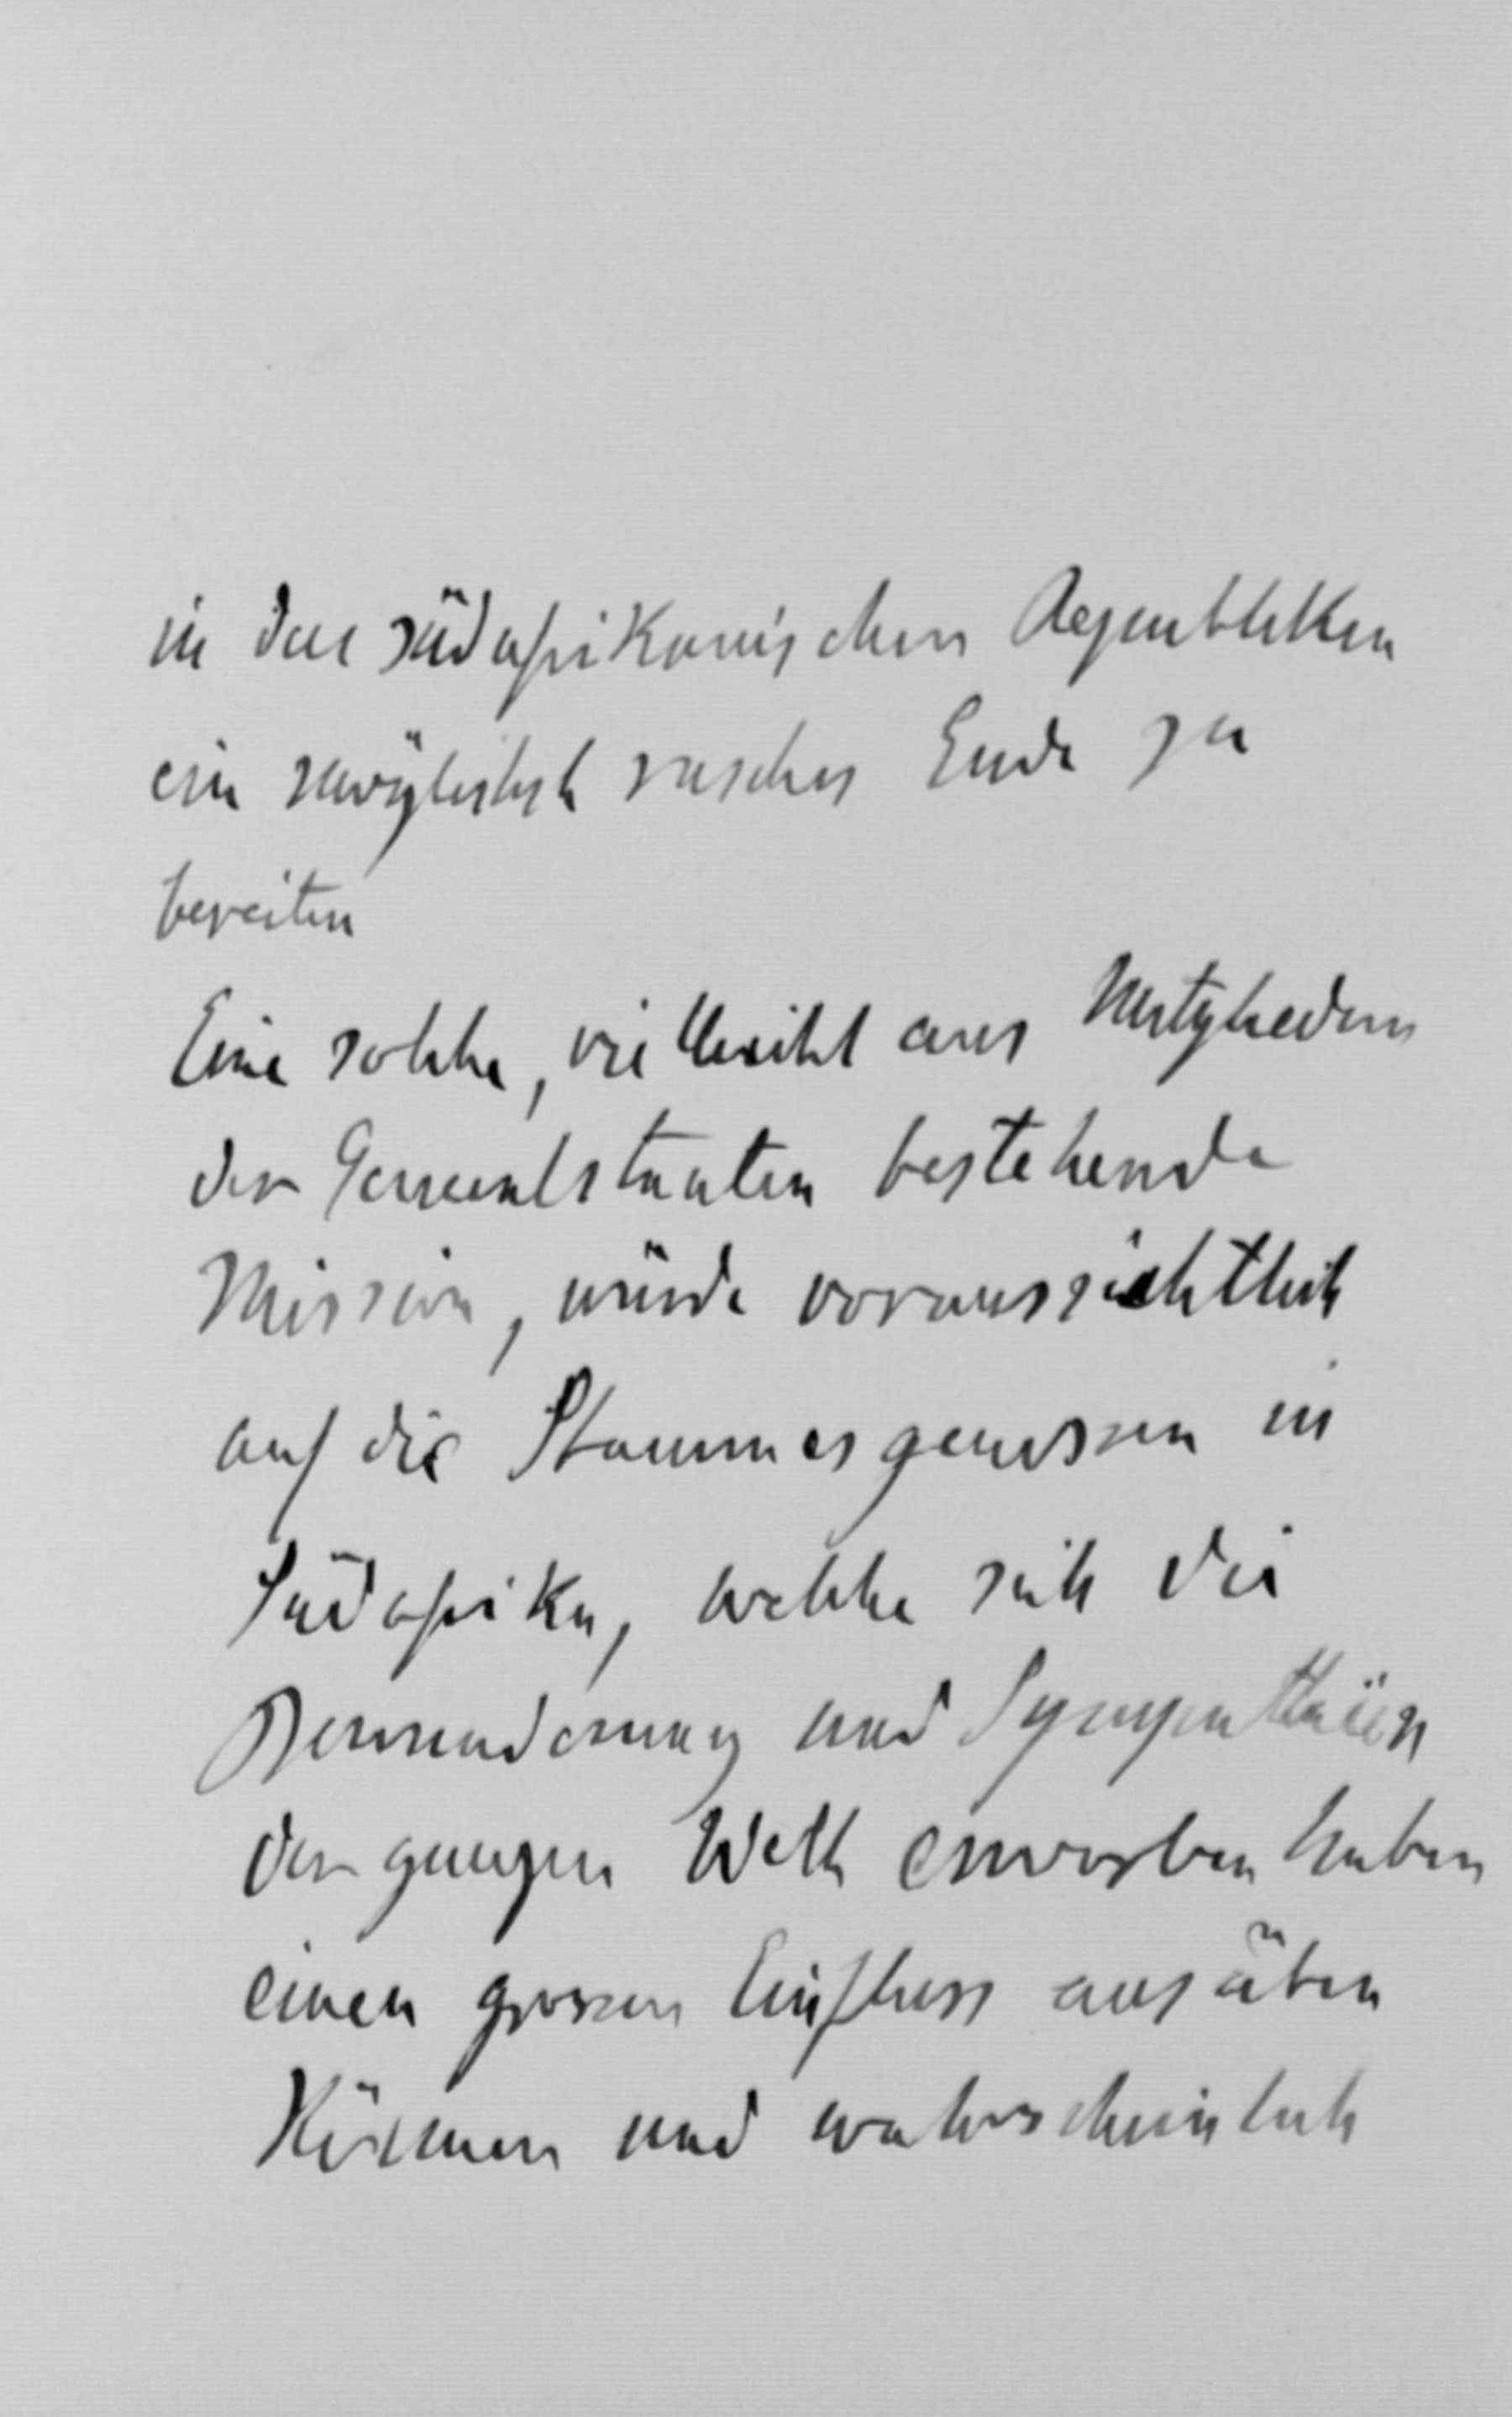 in den südafrikanischen Republiken
ein möglichst rasches Ende zu
bereiten
Eine solche, vielleicht aus Mitgliedern
der Generalstaaten bestehende
Mission, würde voraussichtlich
auf die Stammesgenossen in
Südafrika, welche sich die
Bewunderung und Sympathien
der ganzen Welt erworben haben
einen grossen Einfluss ausüben
können und wahrscheinlich